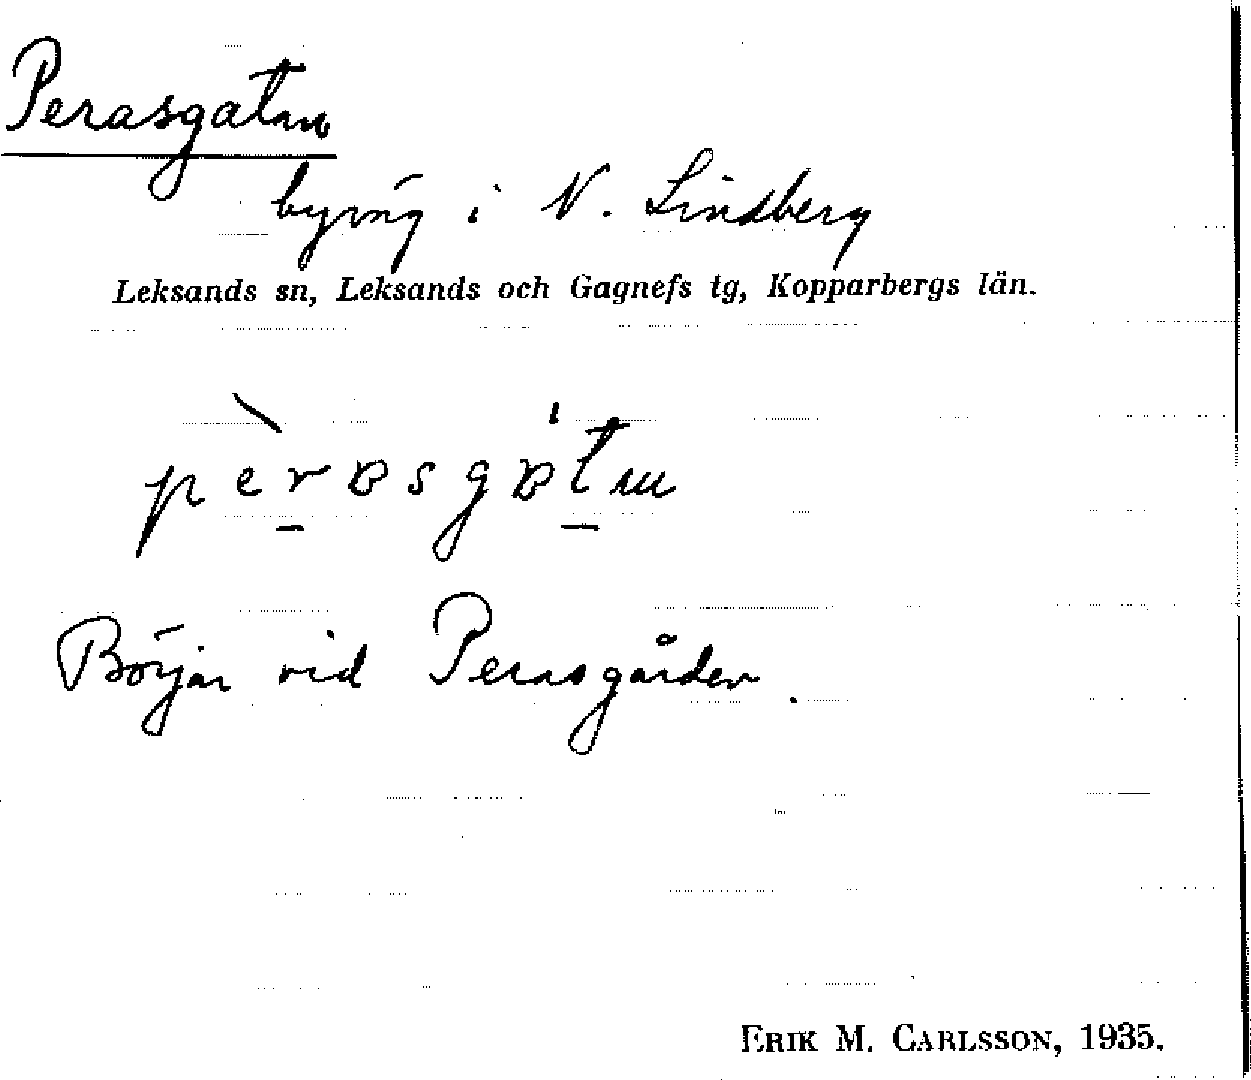 Perasgatan
byväg i N. Lindberg
Leksands sn, Leksands och Gagnefs tg, Kopparbergs län.
Börjar vid Perasgården.
ERIK M. CARLSSON, 1935.